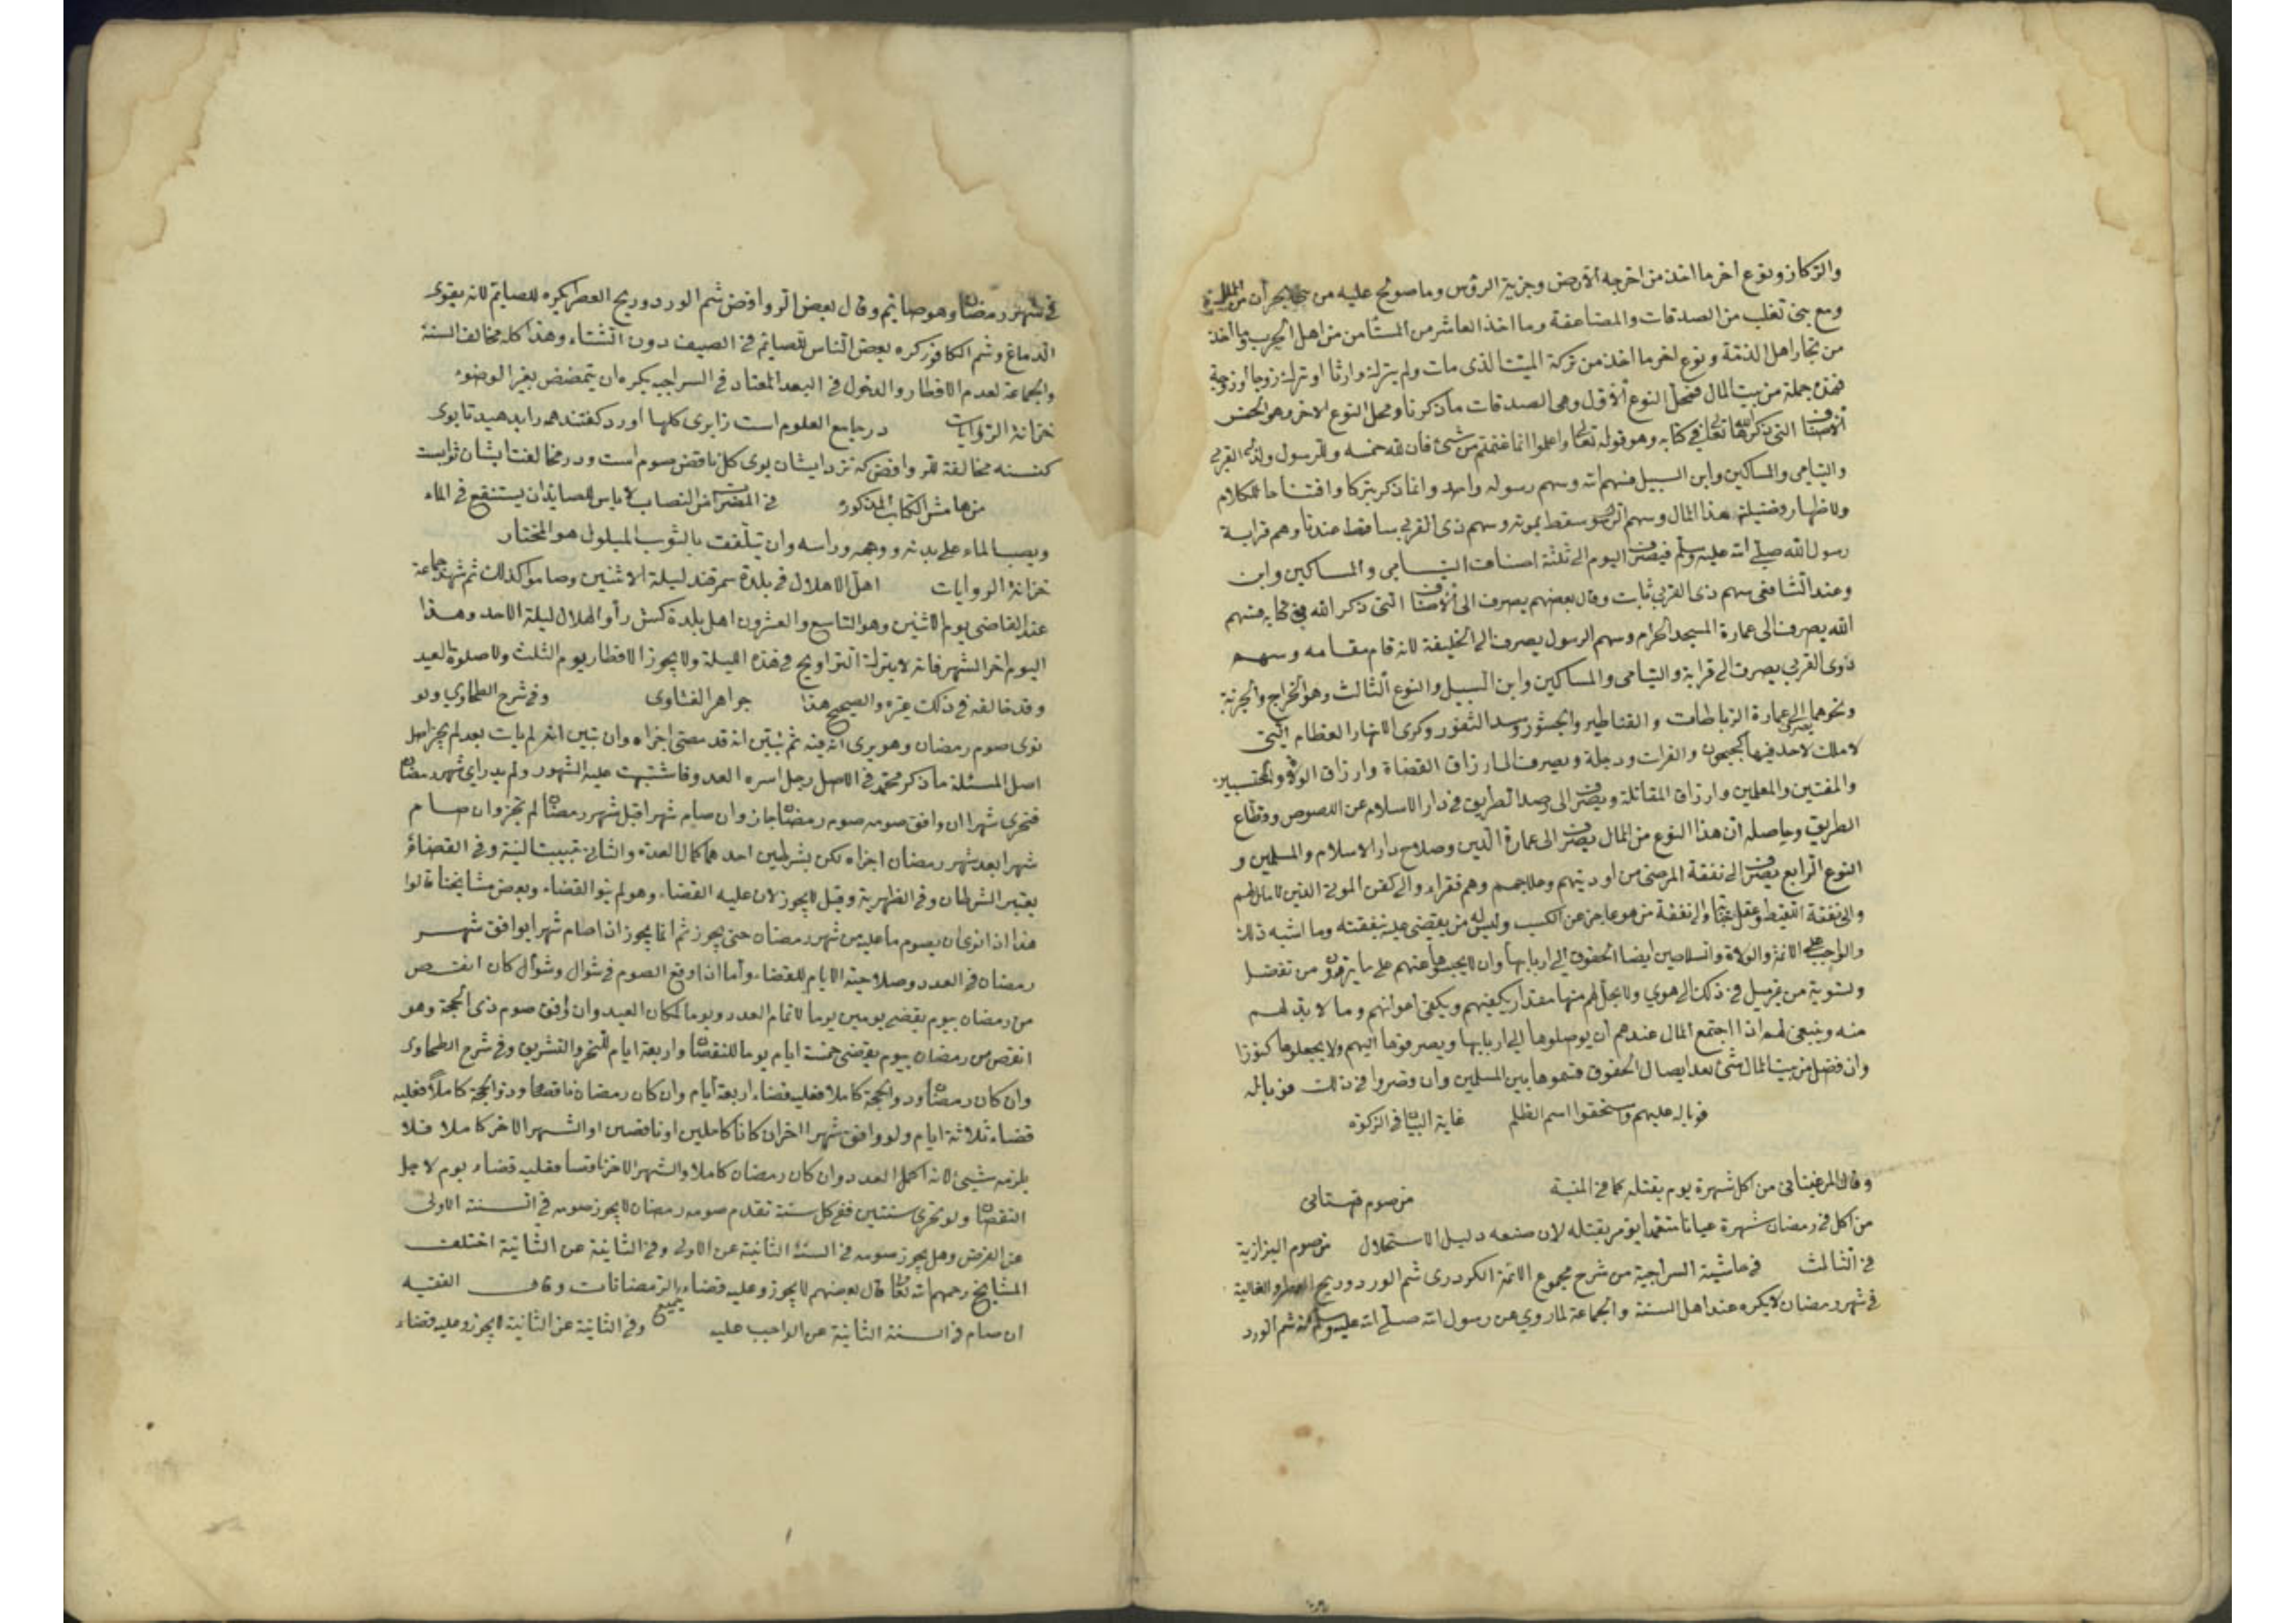 والركاز ونوع اخر ما اخذ من اخرجه الارض وجزية الرؤس وما صولح عليه من
ومع بنى تغلب من الصدقات والمضاعفة وما اخذ العاشر من المستامن من اهل الحرب وما اخذ
من تجار اهل الذمة ونوع اخر ما اخذ من تركة الميت الذى مات ولم يترك وارثا او ترك زوجا او زوجة
فهذه جملة من بيت المال فمحل النوع الاول وهى الصدقات ما ذكرنا ومحل النوع الاخر وهو الخمس
الاصناف التى ذكرها الله تعالى فى كتابه وهو قوله تعالى واعلموا انما غنمتم من شئ فان لله خمسه وللرسول ولذى القربى
واليتامى والمساكين وابن السبيل فسهم الله وسهم رسوله واحد وانما ذكر تبركا وافتتاحا للكلام
ولاظهار وفضيلة هذا المال وسهم الرسول سقط بموته وسهم ذى القربى ساقط عندنا وهم قرابة
رسول الله صلى الله عليه وسلم فيصرف اليوم الى ثلثة اصناف اليتامى والمساكين وابن
وعند الشافعى سهم ذى القربى ثابت وقال بعضهم يصرف الى الاصناف التى ذكر الله فى كتابه فسهم
الله يصرف الى عمارة المسجد الحرام وسهم الرسول يصرف الى الخليفة لانه قام مقامه وسهم
ذوى القربى يصرف الى قرابة واليتامى والمساكين وابن السبيل والنوع الثالث وهو الخراج والجزية
ونحوهما يصرف الى عمارة الرباطات والقناطير والجسور وسد الثغور وكرى الانهار العظام التى
لا ملك لاحد فيها كجيحون والفرات ودجلة ويصرف الى ارزاق القضاة وارزاق الولاة والمحتسبين
والمفتين والمعلمين وارزاق المقاتلة ويصرف الى رصد الطريق فى دار الاسلام عن اللصوص وقطاع
الطريق وحاصله ان هذا النوع من المال يصرف الى عمارة الدين وصلاح دار الاسلام والمسلمين و
النوع الرابع يصرف الى نفقة المرضى من اوديتهم وعلاجهم وهم فقراء والى كفن الموتى الذين لا مال لهم
والى نفقة اللقيط وعقل جنايته والى نفقة من هو عاجز عن الكسب وليس له من يقضى عليه بنفقته وما اشبه ذلك
والواجب على الائمة والولاة والسلاطين ايضا الحقوق الى اربابها وان لا يحبسوها عنهم على ما يرون من تفضيل
وتسوية من غير ميل فى ذلك الى هوى ولا يحل لهم منها مقدار يكفيهم ويكفى اعوانهم وما لا بد لهم
منه وينبغى لهم اذا اجتمع المال عندهم ان يوصلوها الى اربابها ويصرفوها اليهم ولا يجعلوها كنوزا
وان فضل من بيت المال شئ بعد ايصال الحقوق قسموها بين المسلمين وان قصروا فى ذلك فوباله
فوباله عليهم واستحقوا اسم الظلم غاية البيان فى الزكوة
وقال المرغينانى من اكل شهرة يوم بقتله كما فى المنية من صوم قهستانى
من اكل فى رمضان شهرة عيانا متعمدا يؤمر بقتله لان صنعه دليل الاستحلال من صوم البزازية
فى الثالث فى حاشية السراجية من شرح مجموع الائمة الكردرى شم الورد وريح العطر والغالية
فى شهر رمضان لا يكره عند اهل السنة والجماعة لما روى عن رسول الله صلى الله عليه وسلم انه شم الورد
فى شهر رمضان وهو صائم وقال بعض الروافض شم الورد وريح العطر يكره للصايم لانه يقوى
الدماغ وشم الكافور كره بعض الناس للصايم فى الصيف دون الشتاء وهذا كله مخالف السنة
والجماعة لعدم الافطار والدخول فى البعد المعتاد فى السراجيه يكره ان يتمضمض بغير الوضوء
خزانة الروايات در جامع العلوم است زابرى كلها اورد كفتند همه رابدهيد تا بوى
كنند مخالفة للروافض كه نزد ايشان بوى كل ناقض صوم است ودر مخالفت ايشان ثوابست
من هامش الكتاب المذكور فى المضمرات من النصاب لا باس للصايم ان يستنقع فى الماء
ويصب الماء على بدنه ووجهه وراسه وان يتلفف بالثوب المبلول هو المختار
خزانة الروايات اهل الاهلال فى بلدة سمرقند ليلة الاثنين وصاموا كذلك ثم شهد جماعة
عند القاضى يوم الاثنين وهو التاسع والعشرون اهل بلدة كش رأوا الهلال ليلة الاحد وهذا
اليوم اخر الشهر فانه لا يترك التراويح فى هذه الليلة ولا يجوز الافطار يوم الثلث ولا صلوة العيد
وقد خالفه فى ذلك غيره والصحيح هذا جواهر الفتاوى وفى شرح الطحاوي ولو
نوى صوم رمضان وهو يرى انه فيه ثم تبين انه قد مضى اجزاه وان تبين انه لم يات بعد لم يجز اصل
اصل المسئلة ما ذكر محمد فى الاصل رجل اسره العدو فاشتبهت عليه الشهور ولم يدر اى شهر رمضان
فتحرى شهرا ان وافق صومه صوم رمضان جاز وان صام شهرا قبل شهر رمضان لم يجز وان صام
شهرا بعد شهر رمضان اجزاه لكن بشرطين احدهما كمال العدة والثانى تبييت النية وفى القضاء
يعتبر الشرطان وفى الظهرية وقيل لا يجوز لان عليه القضاء وهو لم ينو القضاء وبعض مشايخنا قالوا
هذا اذا نوى ان يصوم ما عليه من شهر رمضان حتى يجوز ثم انما يجوز اذا صام شهرا يوافق شهر
رمضان فى العدد وصلاحية الايام للقضاء واما اذا وقع الصوم فى شوال وشوال كان انقص
من رمضان بيوم يقضى يومين يوما لاتمام العدد ويوما لمكان العيد وان وافق صوم ذى الحجة وهو
انقص من رمضان بيوم يقضى خمسة ايام يوما للنقصان واربعة ايام للنحر والتشريق وفى شرح الطحاوى
وان كان رمضان وذو الحجة كاملا فعليه قضاء اربعة ايام وان كان رمضان ناقصا وذو الحجة كاملا فعليه
قضاء ثلاثة ايام ولو وافق شهرا اخر ان كانا كاملين او ناقصين او الشهر الاخر كاملا فلا
يلزمه شيئ لانه اكمل العدد وان كان رمضان كاملا والشهر الاخر ناقصا فعليه قضاء يوم لاجل
النقصان ولو تحرى سنتين ففى كل سنة تقدم صومه رمضان لا يجوز صومه فى السنة الاولى
عن الفرض وهل يجوز صومه فى السنة الثانية عن الاولى وفى الثانية عن الثانية اختلف
المشايخ رحمهم الله تعالى قال بعضهم لا يجوز وعليه قضاء جميع الرمضانات وقال الفقيه
ان صام فى السنة الثانية عن الواجب عليه وفى الثانية عن الثانية لا يجوز وعليه قضاء